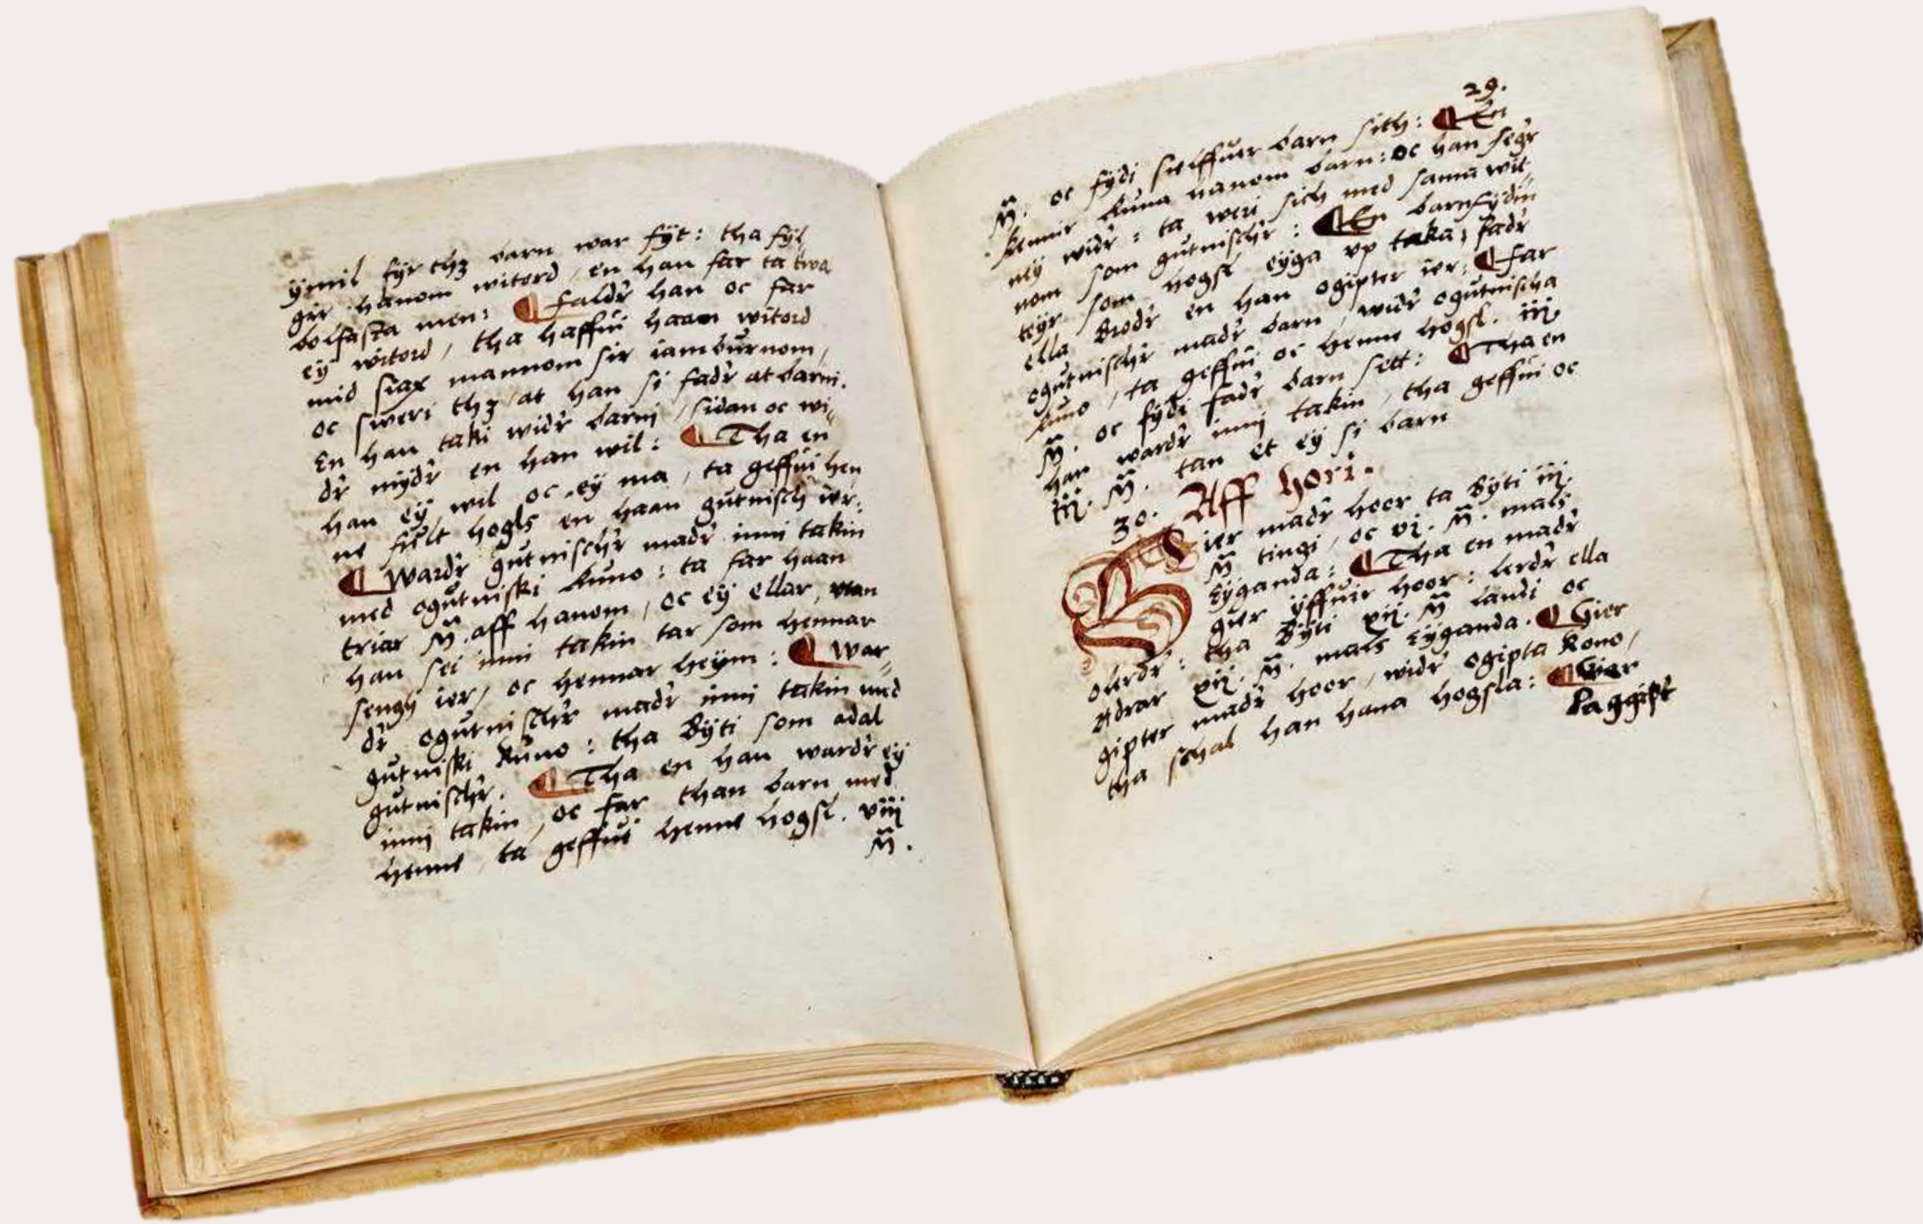 ÿmil fÿr thʒ barn war fÿt: tha fÿl„
gir hanom witord, en han far ta twa
bolfasta men: ¶ faldr̃ han oc far
eÿ witord, tha haffui haan witord
mid siax mannom sir iamburnom,
oc sweri thʒ at han si fadr̃ at barni.
En han taki widr̃ barni, sidan oc wi„
dr̃ mÿdr̃ en han wil: ¶ Tha en
han eÿ wil oc eÿ ma, ta geffui hen
ne fult hogls en haan gutnisch ier:
¶ Wardr̃ gutnischr̃ madr̃ inni takin
med ogutniski kuno: ta far haan
triar M̃. aff hanom, oc eÿ ellar, vtan
han sei inni takin tar som hennar
sengÿ ier, oc hennar heÿm: ¶ War„
dr̃ ogutnischr̃ madr̃ inni takin med
gutniski kuno: tha Bÿti som adal
gutnischr̃. ¶ Tha en han wardr̃ eÿ
inni takin, oc far than barn med
henne, ta geffui henne hogsl. viij
M̃.
29.
M̃. oc fÿdi sielffuer barn sith: ¶ En
kennir kuna nanom barn: oc han segr̃
neÿ widr̃: ta weri sich med sama wit„
nom som gutnischr̃: ¶ En barnfÿdin
teÿr som hogsl eÿga vp taka, fadr̃
ella Brodr̃ en han ogipter ier: ¶ far
ogutnischr̃ madr̃ barn widr̃ ogutnischa
kuno, ta geffui oc henne hogsl. iij.
M̃. oc fÿdi fadr̃ barn sett: ¶ Tha en
han wardr̃ inni takin, tha geffui oc
iij. M̃. tan et eÿ si barn
30. Aff hori.
Gier madr̃ hoor ta Bÿti iij.
M̃ tingi, oc vi. M̃. mals
Eÿganda: ¶ Tha en madr̃
gier ÿffuir hoor: lerdr̃ ella
olerdr̃: tha Bÿti xij. M̃ landi oc
Adrar xij. M̃. mals Eÿganda. ¶ Gier
gipter madr̃ hoor, widr̃ ogipta kono,
tha schal han hana hogsla: ¶ Gier
laggipt